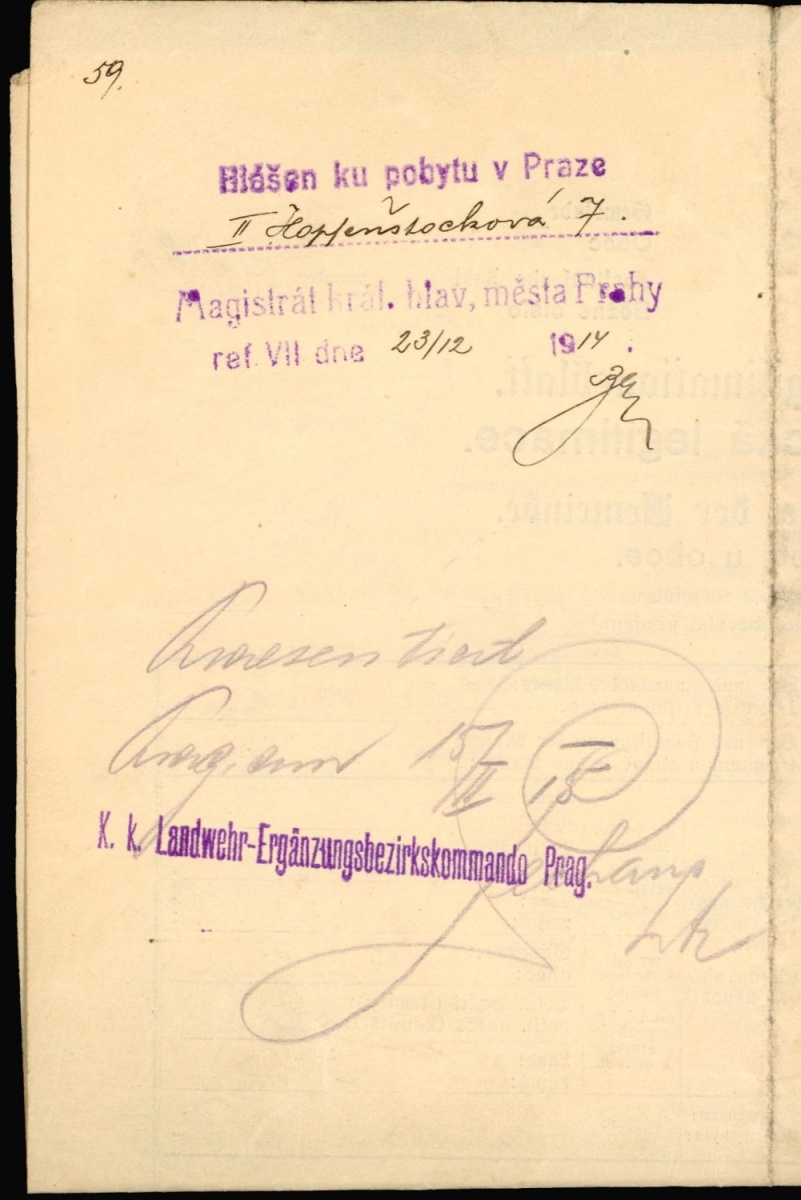 59.
Hlášen ku pobytu v Praze
II Hopfenštocková 7.
Magistrát král. hlav, města Prahy
ref. VII dne 23/12 1914.
Praesentiert
Prag, am 15/II 15
K. k. Landwehr-Ergänzungsbezirkskommando Prag.